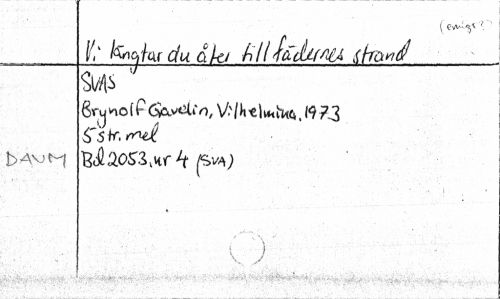 (emigr?)
Vi längtar du åter till fädernes strand
SVAS
Brynolf Gavelin, Vilhelmina, 1973
5 str. mel
DAUM Bd 2053, nr 4 (SVA)